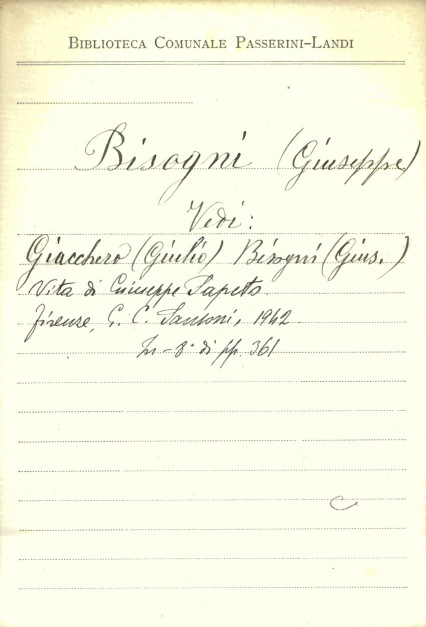 BIBLIOTECA COMUNALE PASSERINI-LANDI
Bisogni (Giuseppe)
Vedi:
Giacchero (Giulio) Bisogni (Gius.)
Vita di Giuseppe Sapeto.
Firenze, G. C. Sansoni, 1942
In-8° di pp. 361